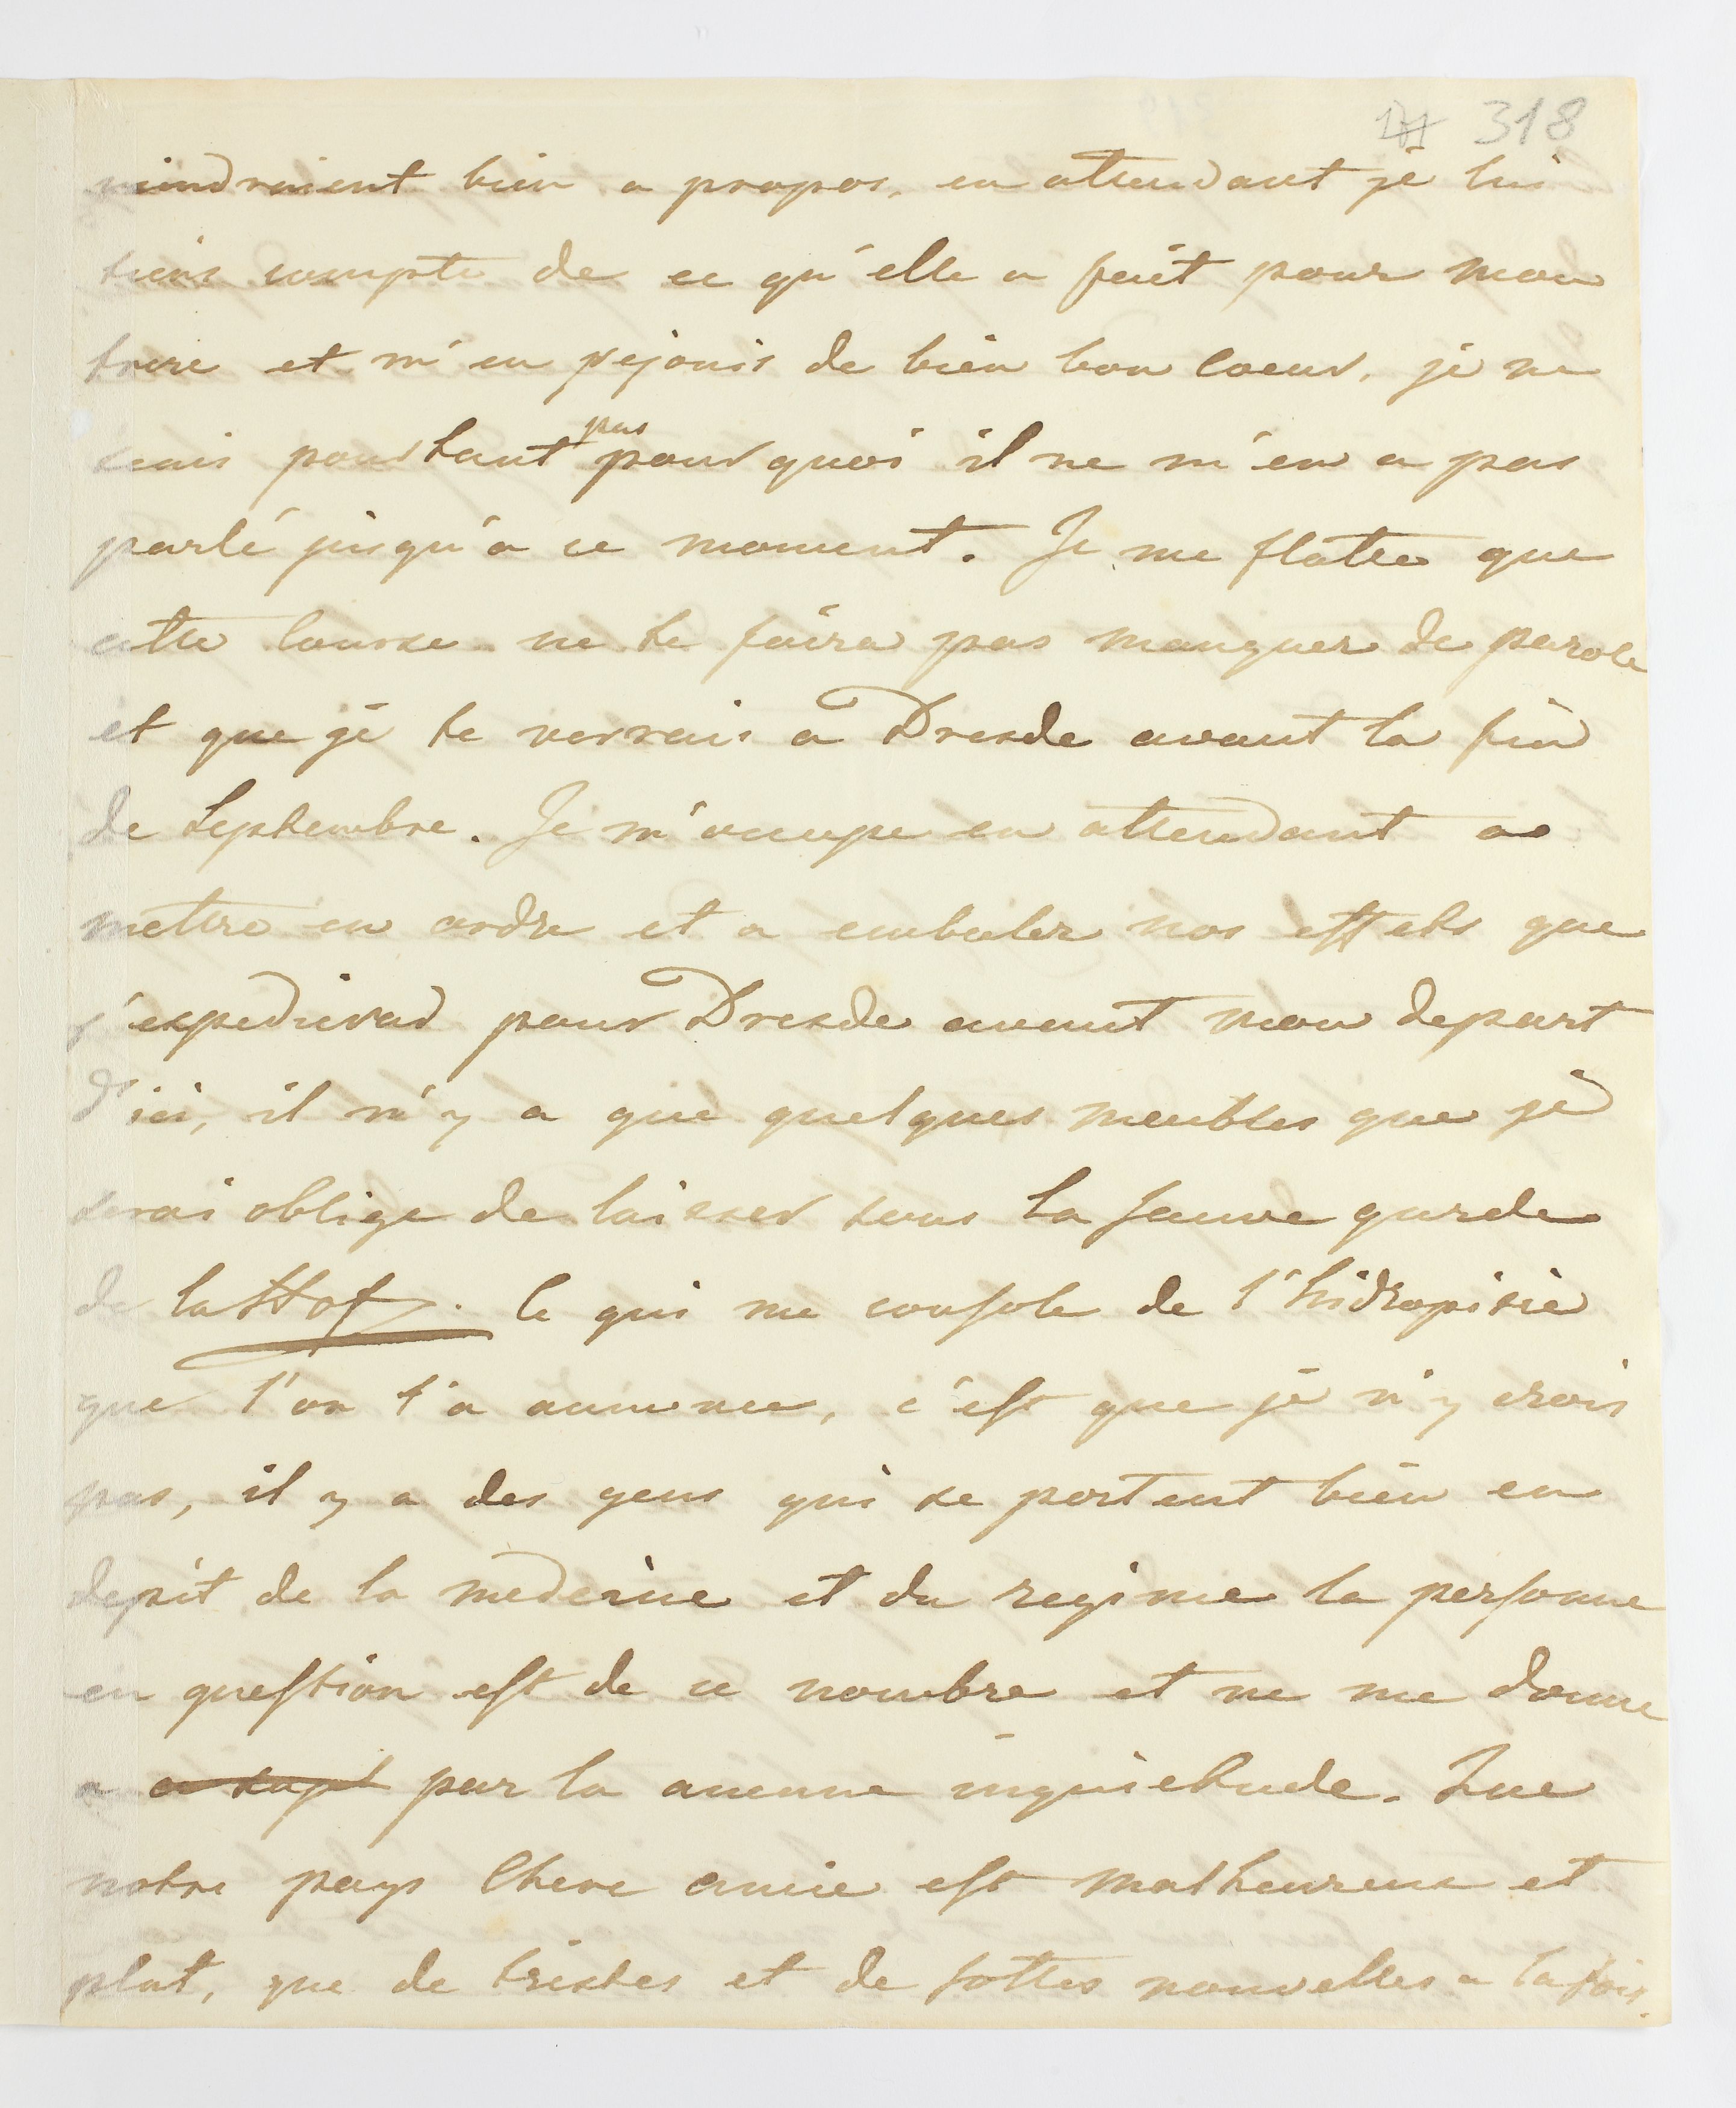 318
viendraient bien a propos, en attendant je lui
tiens compte de ce qu'elle a fait pour mon
frere et m'en rejouis de bien bon coeur, je ne
scais pourtant pas pourquoi il ne m'en a pas
parlé jusqu'a ce moment. Je me flatte que
cette course ne te faira pas manquer de parole
et que je te verrais a Dresde avant la fin
de Septembre. Je m'occupe en attendant a
mettre en ordre et a embaler nos effets que
j'expedierad pour Dresde avent mon depart
d'ici, il n'y a que quelques meubles que je
serai oblige de laisser sous la sauve garde
de la Hof. Ce qui me console de l'hidropisie
que l'on t'a annoncee, c'est que je n'y crois
pas, il y a des gens qui se portent bien en
depit de la medecine et du regime la personne
en question est de ce nombre et ne me donne
a par la aucune inquietude. Que
notre pays Chere amie est malheureux et
plat, que de tristes et de sottes nouvelles a la fois.